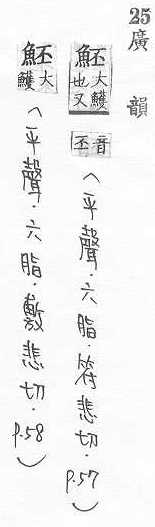 25 廣韻
魾大鱯也又音丕(平聲.六脂.符悲切.p.57)
魾大鱯(平聲.六脂.敷悲切.p.58)